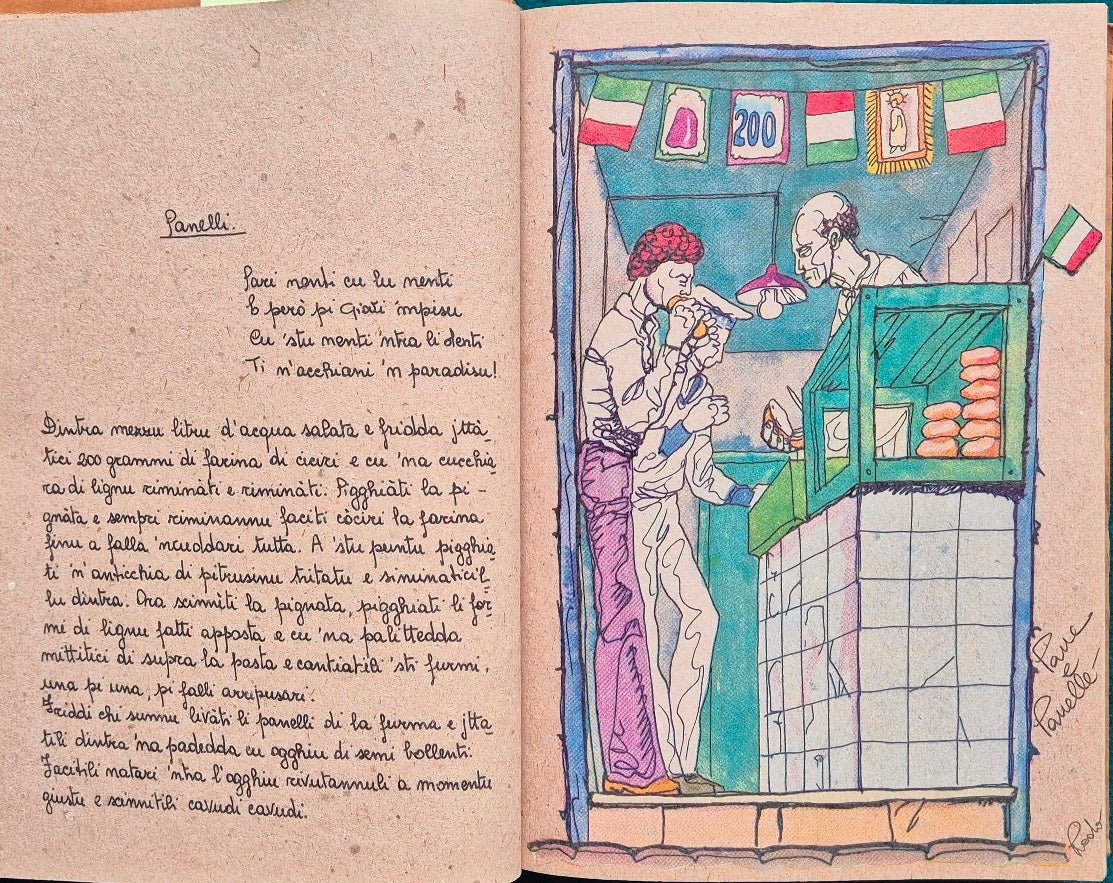 Panelli.
Pari nenti cu lu nenti
E però pi Giòti 'mpisu
Cu 'stu nenti 'ntra li denti
Ti n'acchiani 'n paradisu!
Dintra menzu litru d'acqua salata e fridda jttà-
tici 200 grammi di farina di ciciri e cu 'na cucchia
ra di lignu riminàti e riminàti. Pigghiàti la pi-
gnàta e sempri riminannu faciti còciri la farina
finu a falla 'ncuddari tutta. A 'stu puntu pigghia
ti 'n'anticchia di pitrusinu tritatu e
lu dintra. Ora scinniti la pignata, pigghiati li for
mi di lignu fatti apposta e cu 'na palittedda
mittitici di supra la pasta e cantiatili 'sti furmi,
una pi una, pi falli arripusari.
Friddi chi sunnu livàti li panelli di la furma e jtta
tili dintra 'na padedda cu ogghiu di semi bollenti.
Facitili natari 'ntra l'ogghiu rivutannuli a momentu
giustu e scinnitili cavudi cavudi.
200
Pane
Panelle